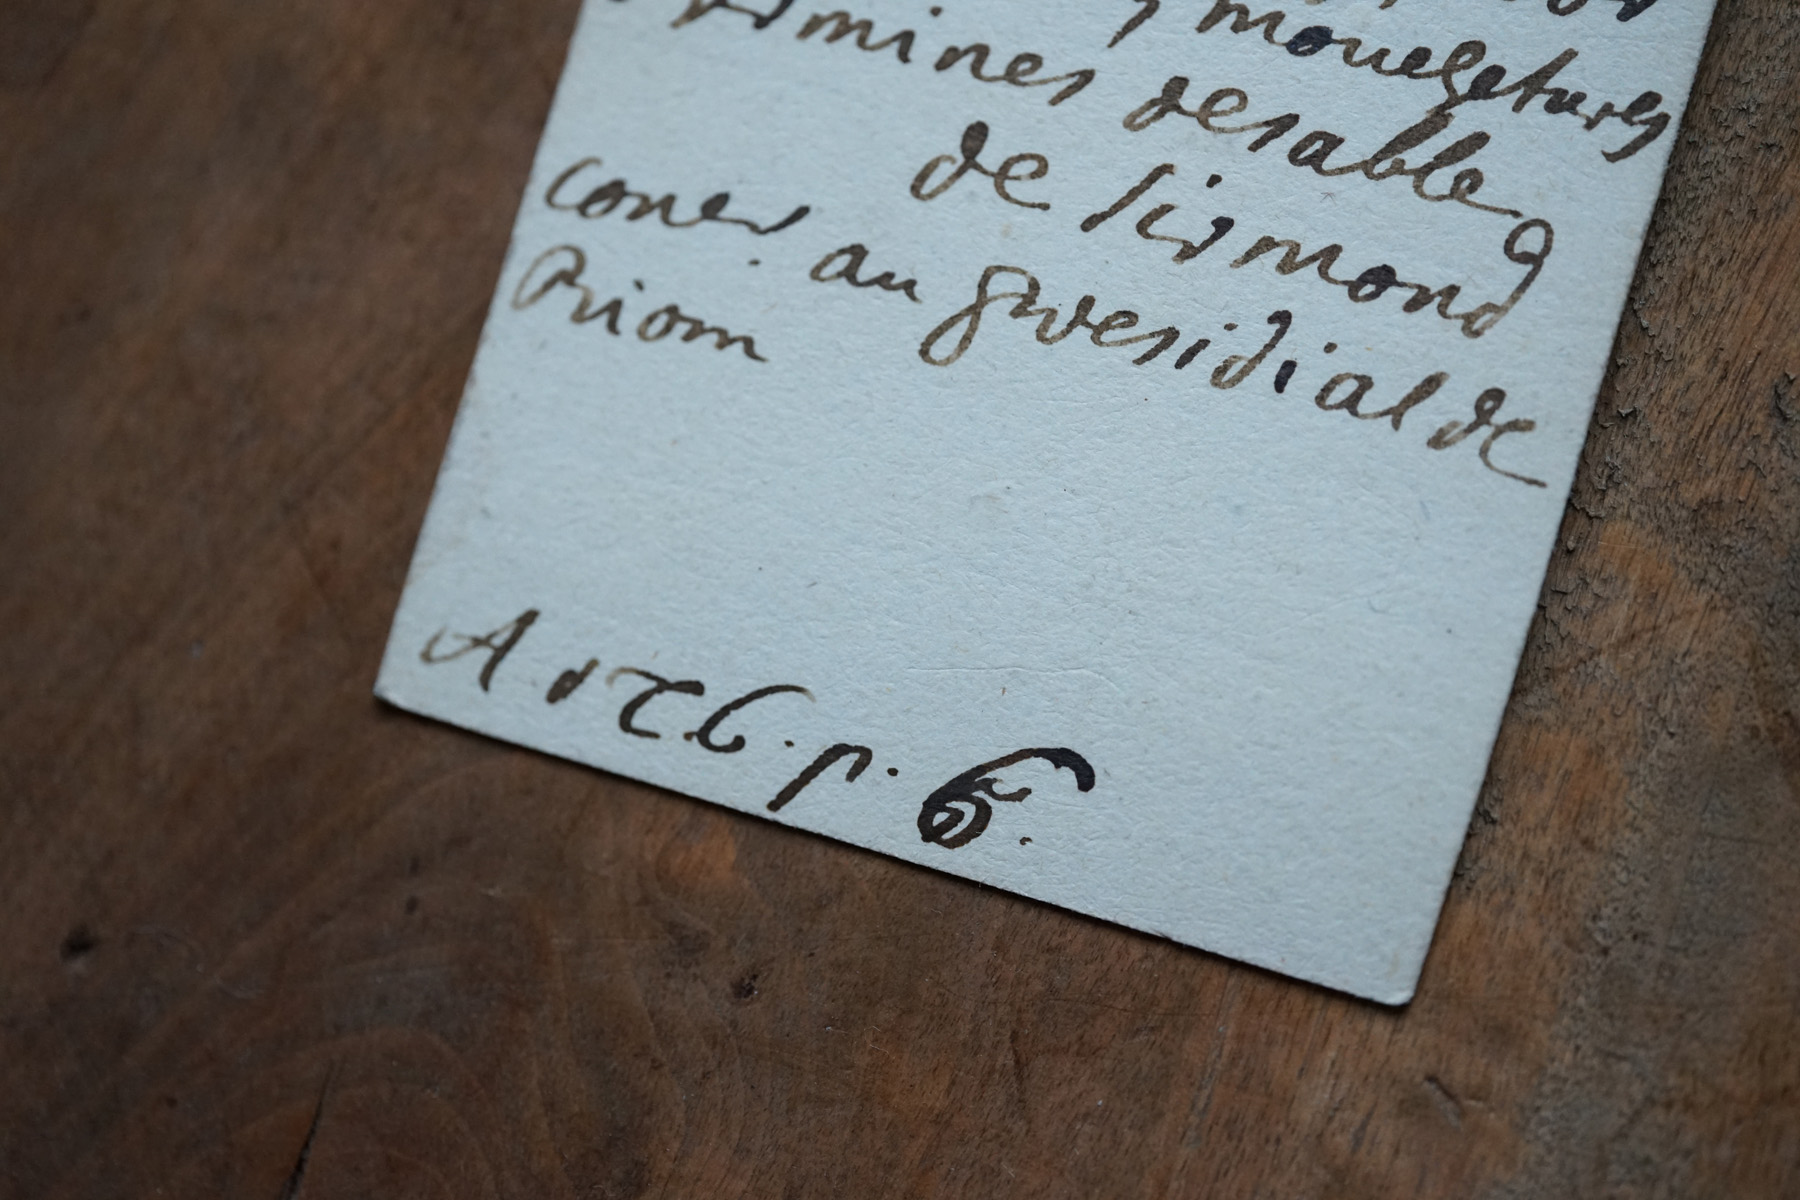 mouchetures
d'hermines de sable
de sirmond
coner. au presidial de
Riom
A
p. 6.